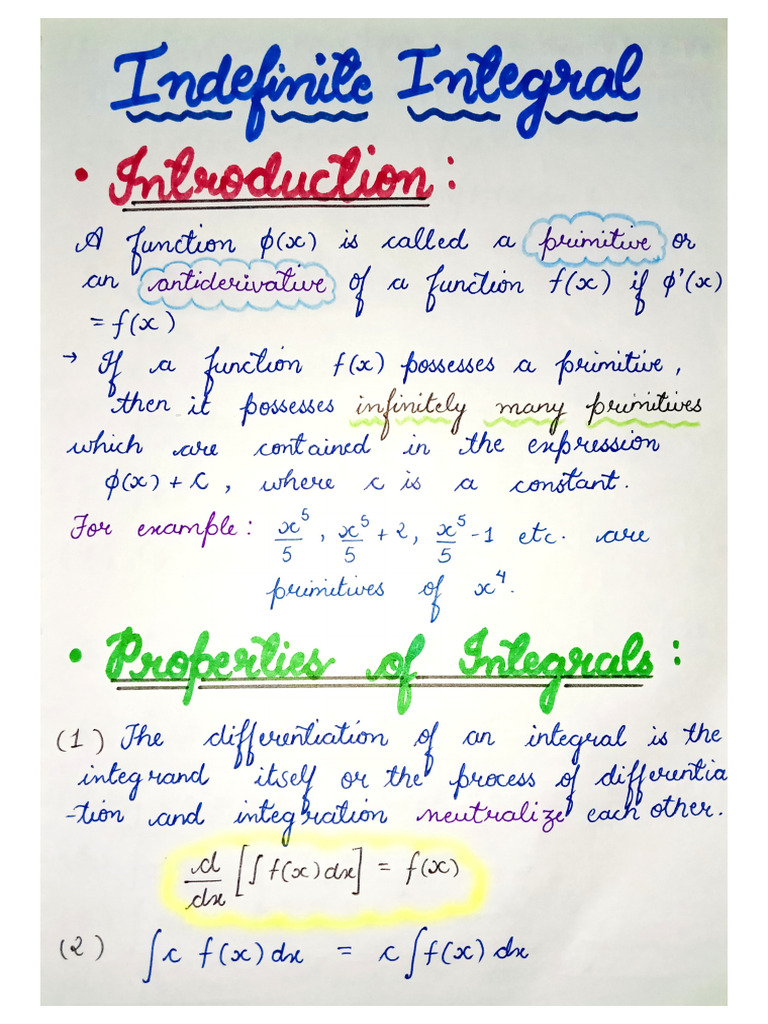 Indefinite Integral
• Introduction:
A function ϕ(x) is called a primitive or
an antiderivative of a function f(x) if ϕ'(x)
= f(x)
→ If a function f(x) possesses a primitive,
then it possesses infinitely many primitives
which are contained in the expression
ϕ(x) + C, where c is a constant.
For example: x⁵/5, x⁵/5 + 2, x⁵/5 - 1 etc. are
primitives of x⁴.
• Properties of Integrals:
(1) The differentiation of an integral is the
integrand itself or the process of differentia
-tion and integration neutralize each other.
d/dx [∫f(x)dx] = f(x)
(2) ∫c f(x) dx = c∫f(x) dx